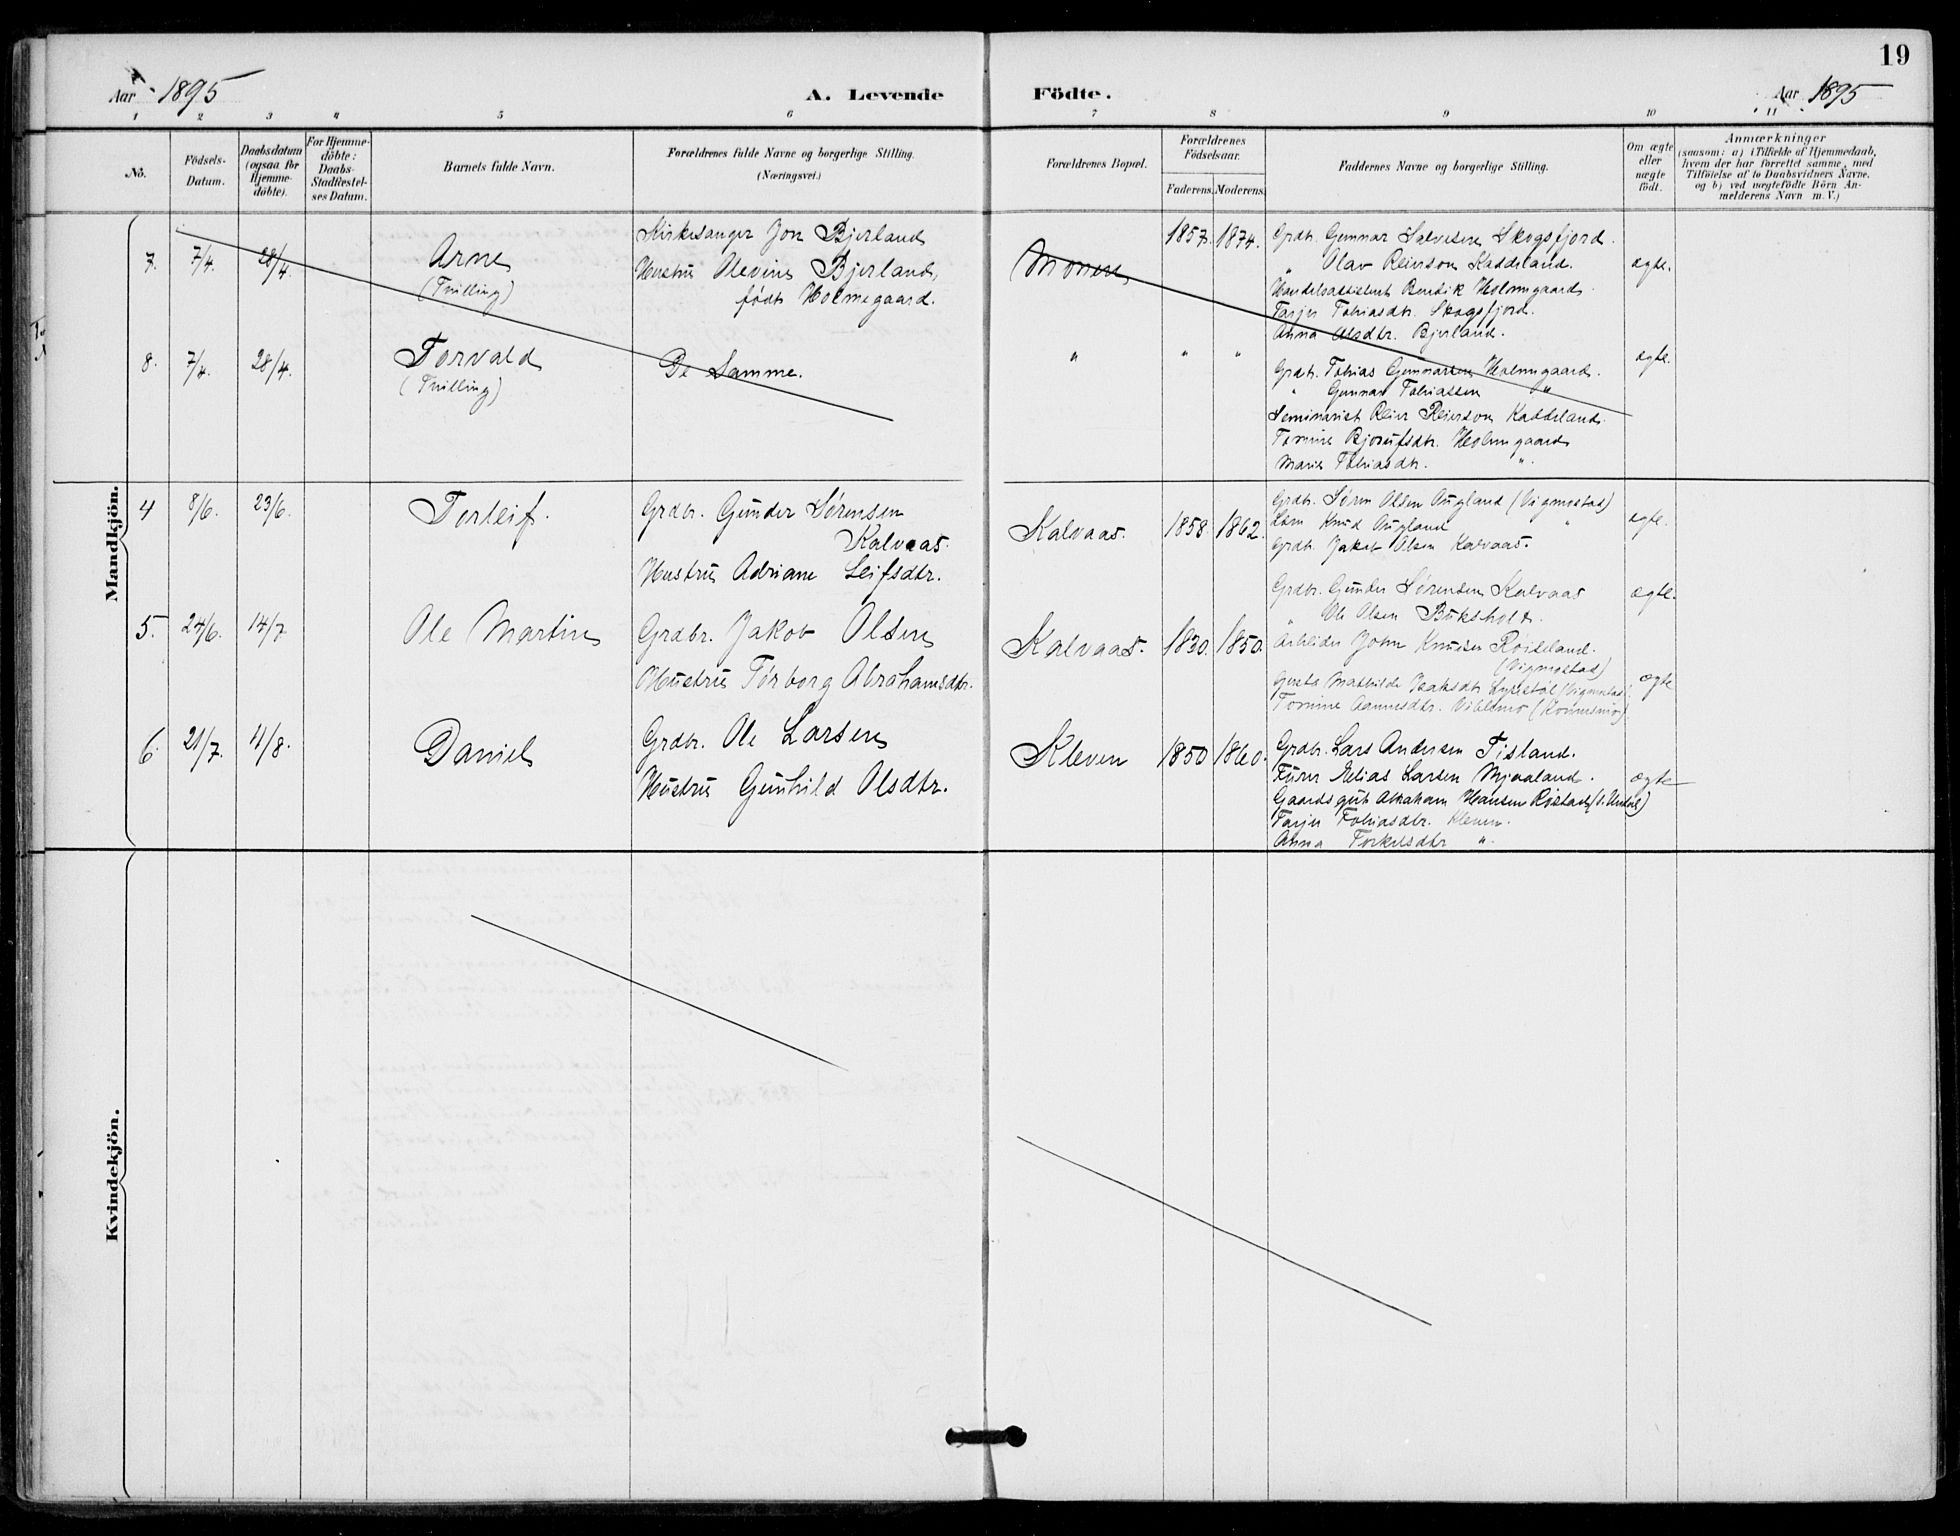 19
Aar 1895
A. Levende Födte.
Aar 1895
1 2 3 4 5 6 7 8 9 10 11
No.
Födsels-Datum.
Daabsdatum (ogsaa for Hjemmedöbte).
For Hjemmedöbte: Daabs-Stadfestelses Datum.
Barnets fulde Navn.
Forældrenes fulde Navne og borgerlige Stilling. (Næringsvei.)
Forældrenes Bopæl.
Forældrenes Födselsaar.
Faderens. Moderens.
Faddernes Navne og borgerlige Stilling.
Om ægte eller uægte födt.
Anmærkninger
(saasom: a) i Tilfælde af Hjemmedaab,
hvem der har forrettet samme, med
Tilföielse af to Daabsvidners Navne,
og b) ved uægtefödte Börn An-
melderens Navn m. V.)
Mandkjön.
7. 7/4. 28/4. Arne (Tvilling)
Kirkesanger Jon Bjerland
Hustru Olevine Bjerland,
født Holmegaard.
1857. 1874.
Grdbr. Gunnar Salvesen Skogsfjord.
" Olav Reierson Kaddeland.
Handelsbetjent Bendik Holmegaard.
Tarjer Tobiasdtr. Skogsfjord.
Anna Olsdtr. Bjerland.
ægte.
8. 7/4. 28/4. Torvald (Tvilling)
De Samme.
" " "
Grdbr. Tobias Gunnarsen Holmegaard.
" Gunnar Tobiassen "
Seminarist Reier Reierson Kaddeland.
Tomine Bjorufsdtr. Holmegaard
Marie Tobiasdtr. ".
ægte.
4 8/6. 23/6. Torleif.
Grdbr. Gunder Sørensen
Kalvaas.
Hustru Adriane Leifsdtr.
Kalvaas. 1858. 1862.
Grdbr. Søren Olsen Augland (Vigmostad)
Knud Augland "
Grdbr. Jakob Olsen Kalvaas.
ægte.
5. 24/6. 14/7 Ole Martin
Grdbr. Jakob Olsen
Hustru Torborg Abrahamsdtr.
Kalvaas. 1830. 1850.
Grdbr. Gunder Sørensen Kalvaas
" Ole Olsen Buksholt.
Arbeider John Knudsen Røiseland.
(Vigmostad)
Mathilde Isaksdtr. (Vigmostad).
Tomine Aanensdtr.
ægte.
ægte
6. 21/7. 4/8. Daniel
Grdbr. Ole Larsen
Hustru Gunhild Olsdtr.
Kleven 1850 1860.
Grdbr. Lars Andersen Tisland.
Furer Elias Larsen Mjaaland.
Gaardsgut Abraham Hansen Røstad (S. Undal)
Tarjer Tobiasdtr. Kleven.
Anna Torkelsdtr ".
ægte
Kvindekjön.